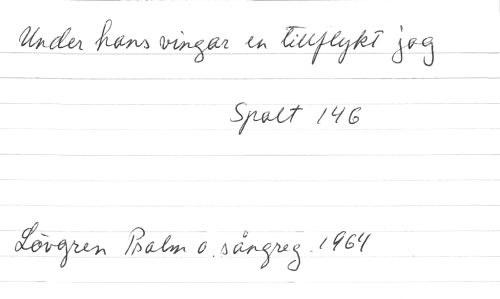 Under hans vingar en tillflykt jag
Spalt 146
Lövgren Psalm o. sångreg. 1964